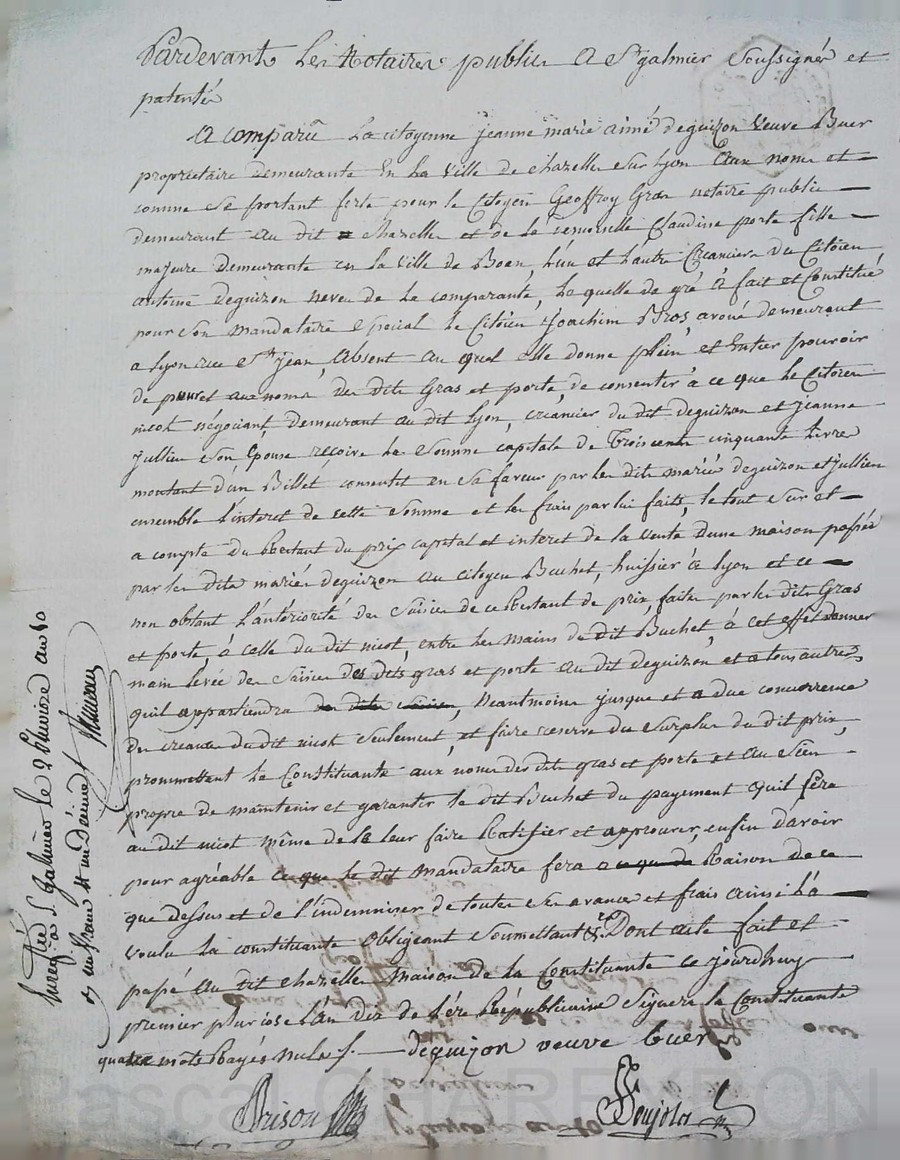 Pardevant Les Notaires publics a St galmier soussignés et
patentés
A comparu La citoyenne jeanne marie aimé deguizon veuve Buer
propriétaire demeurante en La ville de chazelle sur Lyon aux noms et
comme se portant forte pour le citoyen Geoffroy Gras notaire public
demeurant au dit chazelles et de la demoiselle Claudine porte fille
majeure demeurante en la ville de Boen, l'un et l'autre Créanciers du Citoyen
antoine deguizon neveu de la comparante, la quelle de gré a fait et Constitué
pour son mandataire special le Citoyen joachim Bros avoué demeurant
a lyon rue St jean, absent au quel elle donne plein et Entier pouvoir
de pour et aux noms des dits Gras et porte, de consentir à ce que le Citoyen
nicot négociant demeurant au dit Lyon, créancier du dit deguizon et jeanne
jullien son épouse reçoive la somme capitale de Trois cents cinquante Livres
montant d'un Billet consenti en sa faveur par les dits mariés deguizon et jullien
ensemble l'interet de cette somme et les frais par lui faits, le tout sur et
a compte du Restant du prix capital et interet de la vente d'une maison passée
par les dits mariés deguizon au citoyen Buchet, huissier à lyon et ce
non obstant l'antériorité des saisies de ce Restant de prix, faites par les dits Gras
et porte, à celle du dit nicot, entre les mains du dit Buchet, à cet effet donner
main levée des saisies des dits gras et porte au dit deguizon et a tous autres
quil appartiendra de dites saisies, Neantmoins jusque et a due concurrence
des creances du dit nicot seulement, et faire reserve du surplus du dit prix,
promettant la Constituante aux noms des dits gras et porte et au sien
propre de maintenir et garantir le dit Buchet du payement quil fera
au dit nicot même de le leur faire Ratifier et approuver, enfin d'avoir
pour agréable ce que le dit mandataire fera a ce que de Raison de ce
que dessus et de l'indemniser de toutes ses avances et frais ainsi L'a
voulu la constituante obligeant soumettant &c Dont acte fait et
passé au dit chazelle maison de la Constituante ce jourdhuy
premier pluviose L'an dix de l'ére Républicaine signera la Constituante
quatre mots Rayés nuls. deguizon veuve buer
Brison Poujola
Enregistré à St Galmier le 2 Pluviose an 10
Reçu un franc dix centimes